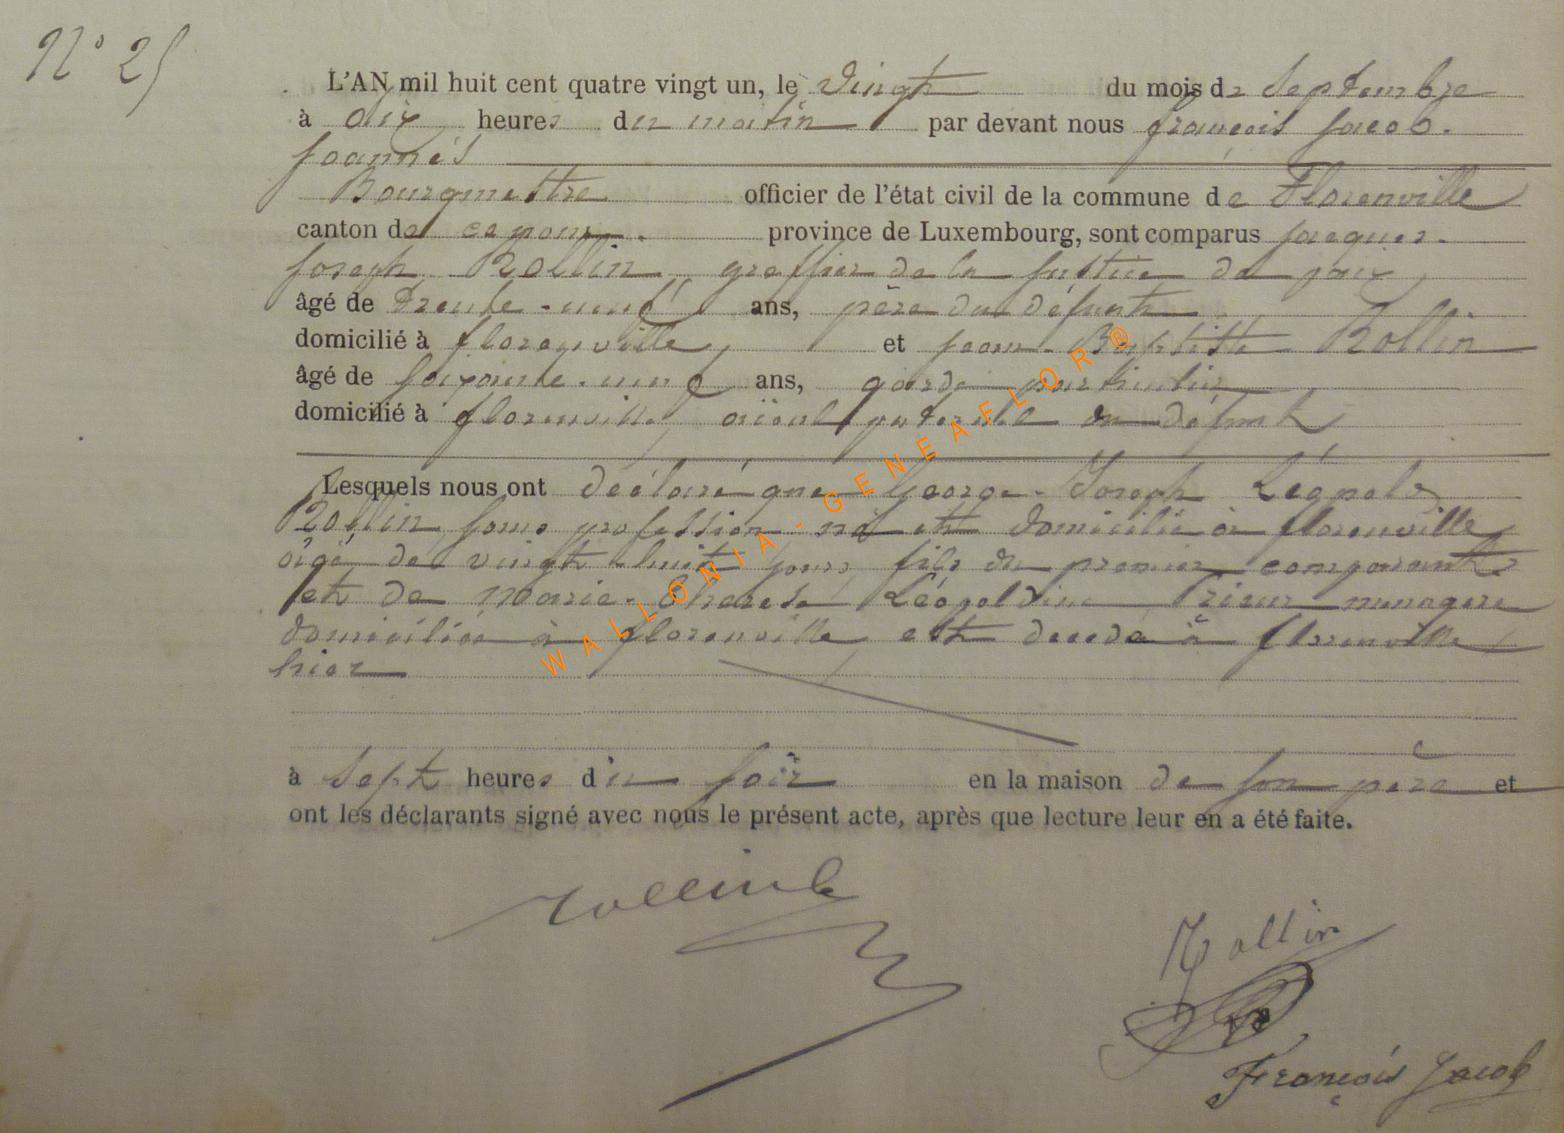 N° 25
L'AN mil huit cent quatre vingt un, le Vingt du mois de Septembre
à dix heures du matin par devant nous françois Jacob.
Joannès
Bourgmestre officier de l'état civil de la commune de Florenville
canton de province de Luxembourg, sont comparus jacques.
Joseph Rollin, greffier de la Justice de paix,
âgé de trente-neuf ans, père du défunt
domicilié à florenville, et jean-Baptiste Rollin
âgé de soixante-neuf ans, garde particulier
domicilié à florenville, aïeul paternel du défunt
Lesquels nous ont déclaré que George-Joseph Léopold
Rollin, sans profession, né et domicilié à florenville
âgé de vingt huit jours, fils du premier comparant
et de Marie-Thérèse Léopoldine Prieur ménagère
domiciliée à florenville est décédé à florenville
hier
à Sept heures du soir en la maison de son père et
ont les déclarants signé avec nous le présent acte, après que lecture leur en a été faite.
Rollin
François Jacob
WALLONIA - GENEAFLOR®